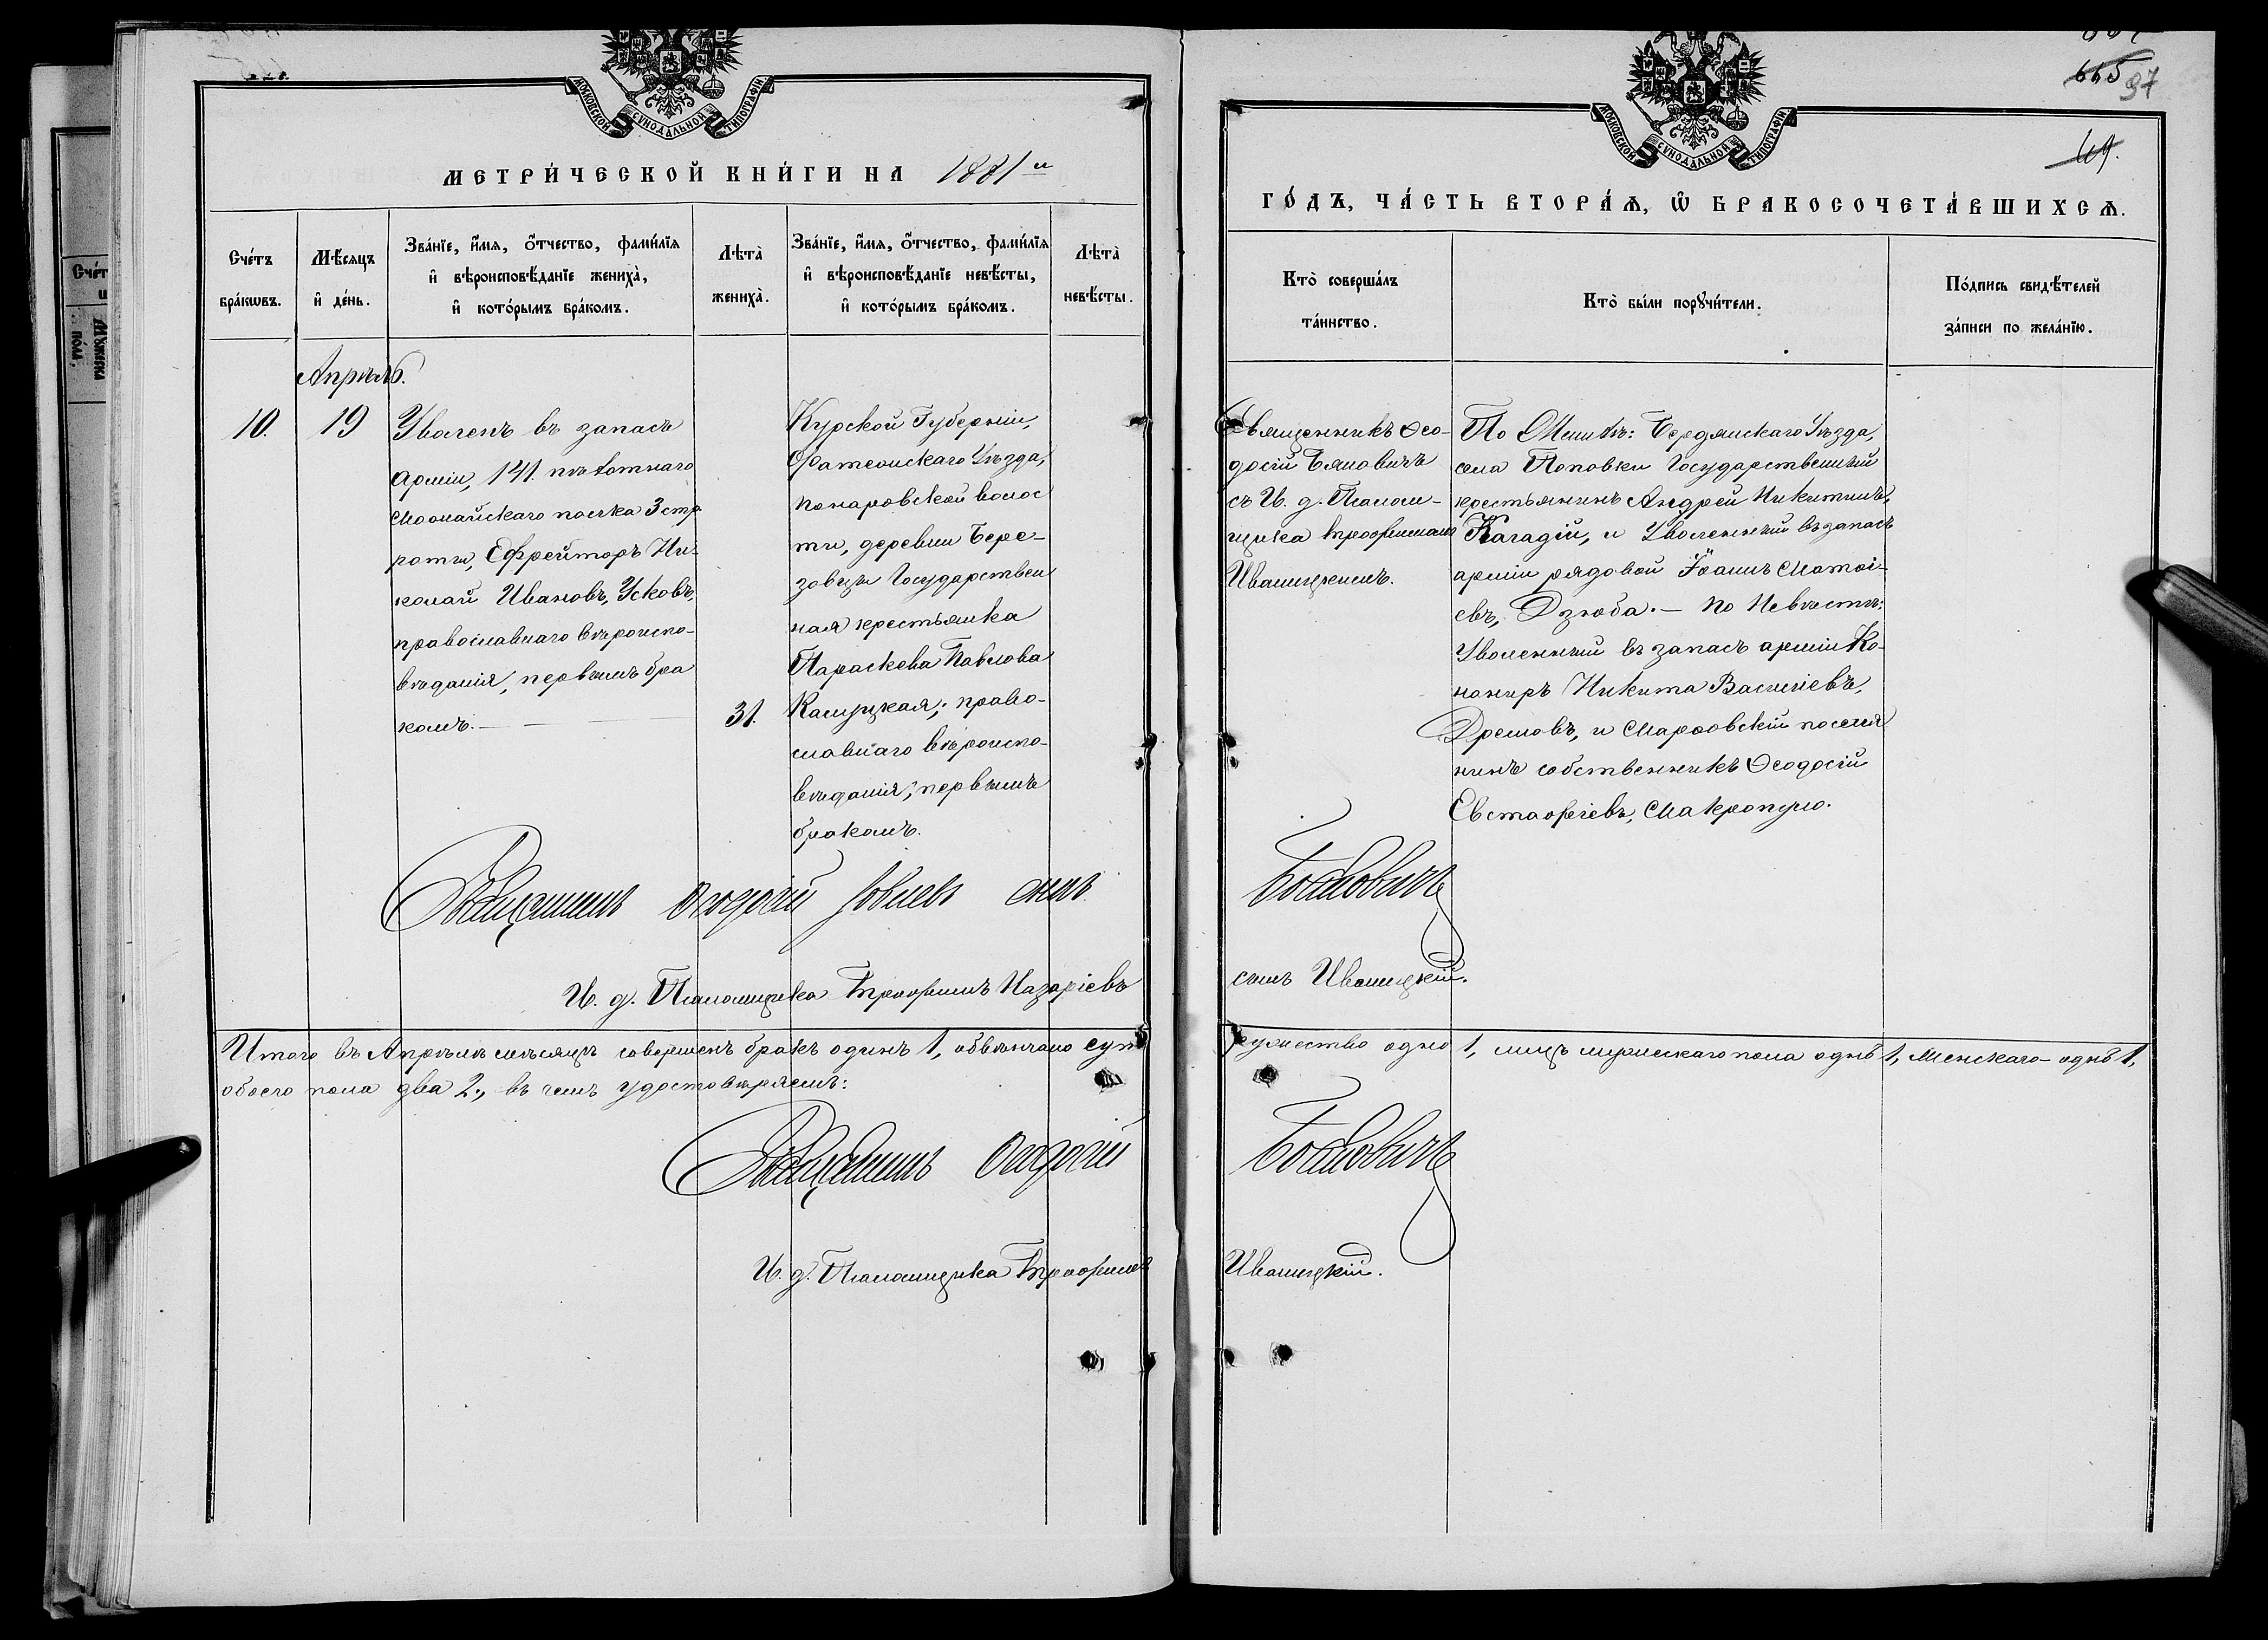 МОСКОВСКОЙ СѴНОДАЛЬНОЙ ТИПОГРАФІИ
МЕТРИ́ЧЕСКОЙ КНИ́ГИ НА 1881й
Сче́тъ бра́кωвъ.
Мѣ́сяцъ и҆ де́нь.
Зва́нїе, и҆́мѧ, ѻ҆́тчество, фами́лїѧ и҆ вѣроисповѣ́данїе жениха̀, и҆ кото́рымъ бра́комъ.
Лѣта̀ жениха̀.
Зва́нїе, и҆́мѧ, ѻ҆́тчество, фами́лїѧ и҆ вѣроисповѣ́данїе невѣ́сты, и҆ кото́рымъ бра́комъ.
Лѣта̀ невѣ́сты.
Апрѣль.
10.
19
Уволенъ въ запасъ
арміи, 141. пѣхотнаго
Можайскаго полка 3 стр.
роты, Ефрейторъ Ни-
колай Ивановъ, Усковъ,
православнаго вѣроиспо-
вѣданія, первымъ бра
комъ.—
31.
Курской Губерніи,
Фатежскаго Уѣзда,
волос
ти, деревни Бере-
зовци Государствен
ная крестьянка
Параскева Павлова
право-
славнаго вѣроиспо-
вѣданія; первымъ
бракомъ.
Священникъ Ѳеодосій Іовлевъ сынъ
И. д. Псаломщика Трофимъ Назаріевъ
Итого въ Апрѣлѣ мѣсяцѣ совершенъ бракъ одинъ 1, обвѣнчано суп
обоего пола два 2., въ чемъ удостовѣряемъ:
Священникъ Ѳеодосій
И. д. Псаломщика Трофимъ
МОСКОВСКОЙ СѴНОДАЛЬНОЙ ТИПОГРАФІИ
665
97
69.
ГО́ДЪ, ЧА́СТЬ ВТОРА́Ѧ, Ѽ БРАКОСОЧЕТА́ВШИХСѦ.
Кто̀ соверша́лъ та́инство.
Кто̀ бы́ли порꙋчи́тели.
По́дпись свидѣ́телей за́писи по жела́нїю.
Священникъ Ѳео-
досій Бяновичъ
съ И. д. Псалом-
щика Трофимомъ
Иваницкимъ.
По Женихѣ: Бердянскаго Уѣзда,
села Поповки Государственный
крестьянинъ Андрей Никитинъ,
Карадій, и Уволенный въ запасъ
арміи рядовой Іоаннъ Матѳі-
евъ, Дзюба.— По Невѣстѣ:
Уволенный въ запасъ арміи Ка-
нониръ Никита Василіевъ,
и поселя
нинъ собственникъ Ѳеодосій
Евстафіевъ, Макропуло.
сынъ Иваницкій.
ружество одно 1, лицъ мужескаго пола одно 1, женскаго — одно 1,
Иваницкій.